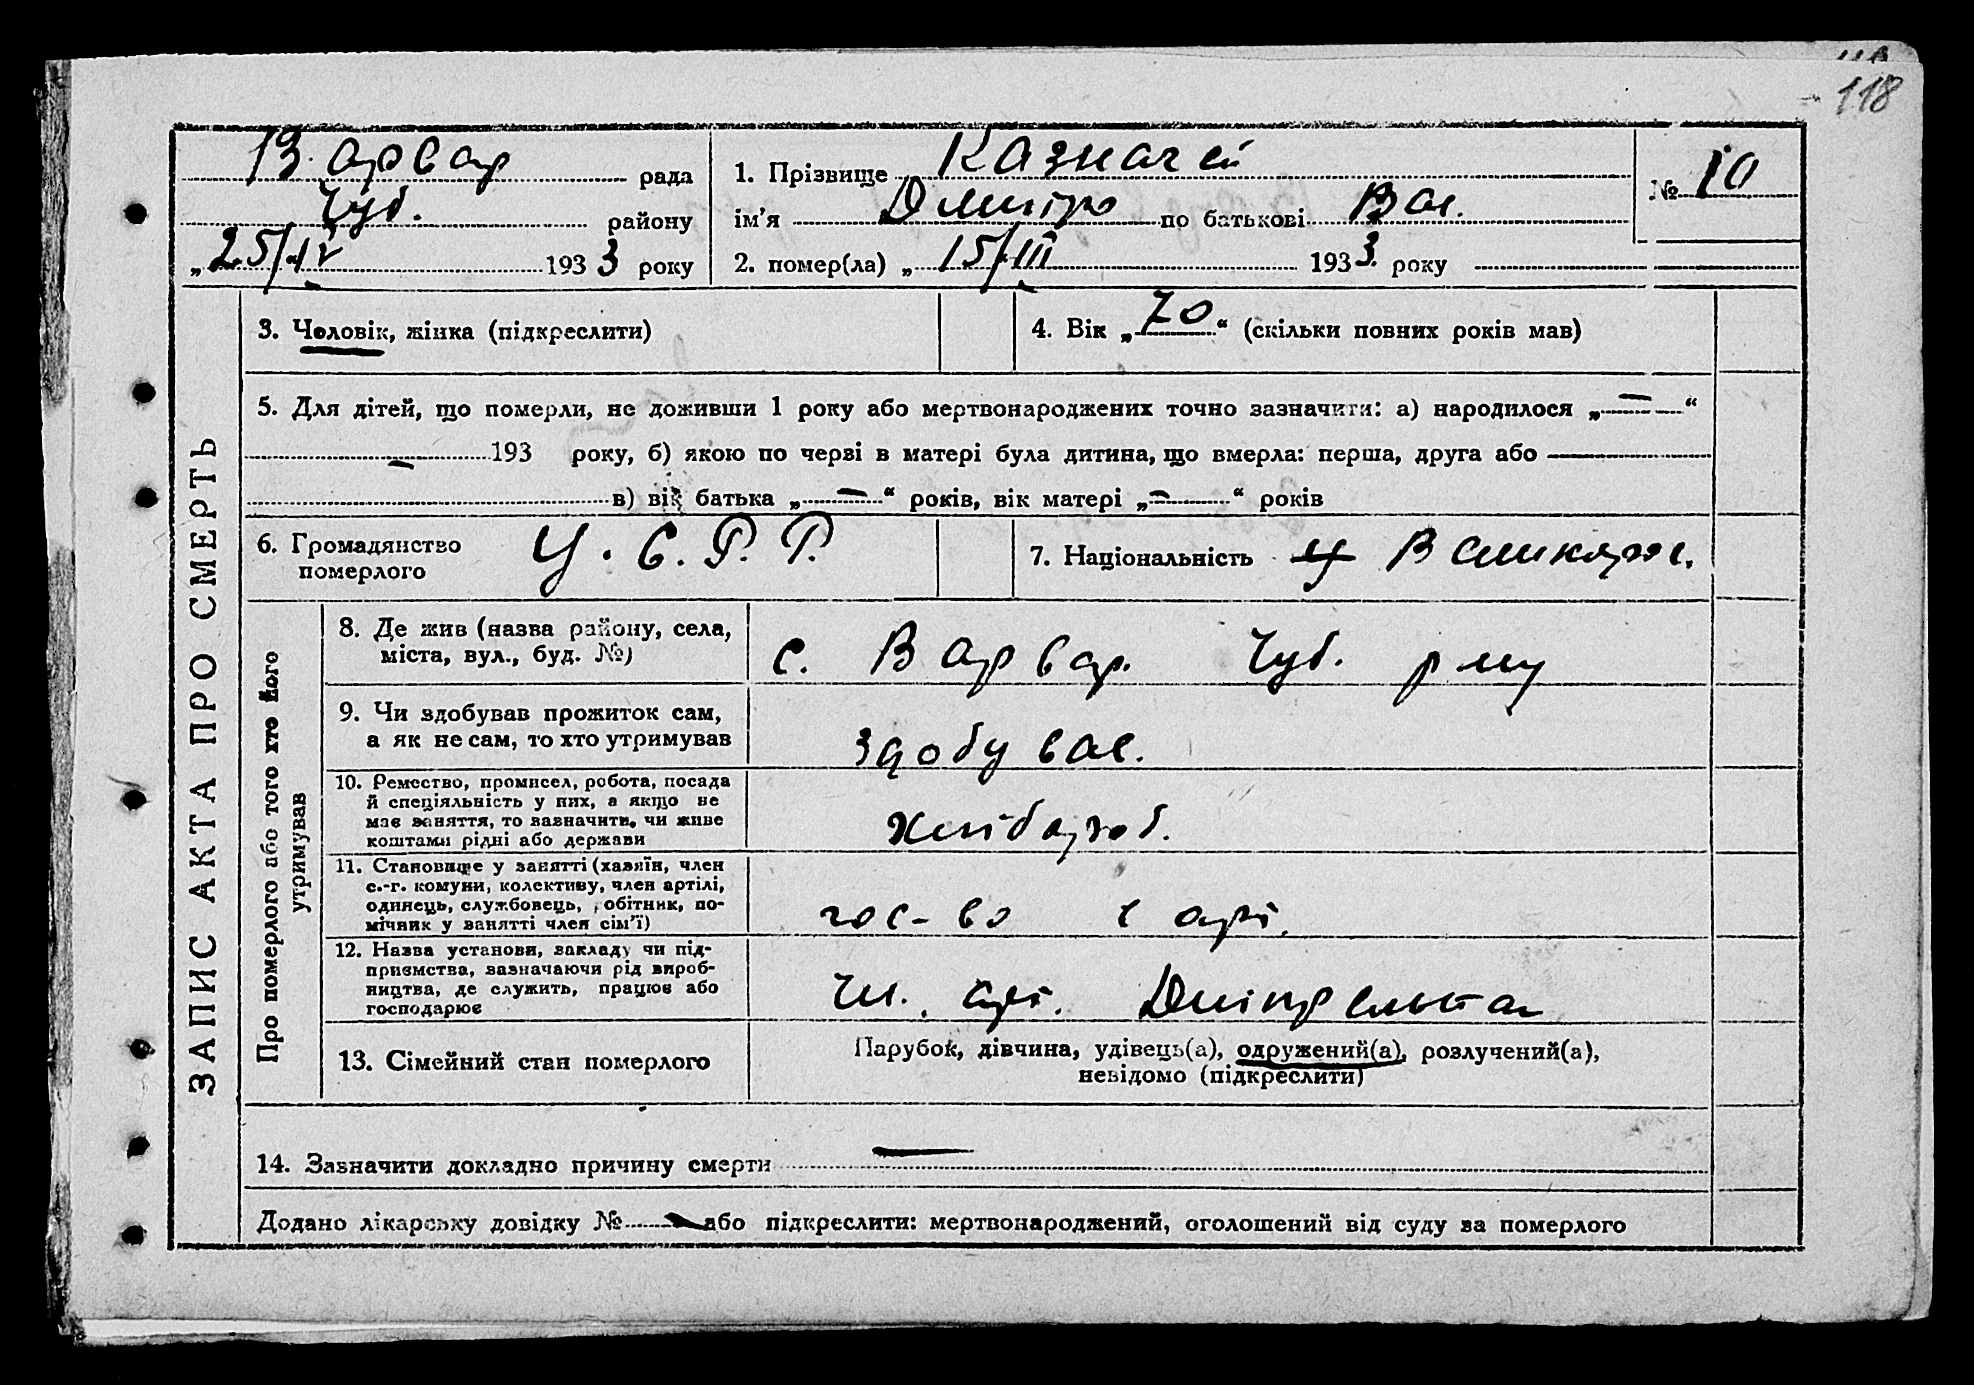 118
Варвар рада
Чуб. району
„25/IV 1933 року
1. Прізвище Казначей
ім'я Дмитро по батькові Вас.
2. помер(ла) „15/III 1933 року
№ 10
ЗАПИС АКТА ПРО СМЕРТЬ
3. Чоловік, жінка (підкреслити)
4. Вік „70“ (скільки повних років мав)
5. Для дітей, що померли, не доживши 1 року або мертвонароджених точно зазначити: а) народилося „—“
— 193 року, б) якою по черзі в матері була дитина, що вмерла: перша, друга або
в) вік батька „—“ років, вік матері „—“ років
6. Громадянство
померлого
У.С.Р.Р.
7. Національність
Про померлого або того хто його
утримував
8. Де жив (назва району, села,
міста, вул., буд. №)
с. Варвар. Чуб. р-ну
9. Чи здобував прожиток сам,
а як не сам, то хто утримував
здобував.
10. Ремество, промисел, робота, посада
й спеціяльність у них, а якщо не
має заняття, то зазначити, чи живе
коштами рідні або держави
хлібороб.
11. Становище у занятті (хазяїн, член
с.-г. комуни, колективу, член артілі,
одинець, службовець, робітник, по-
мічник у занятті член сім'ї)
гос-во в арт.
12. Назва установи, закладу чи під-
приємства, зазначаючи рід вироб-
ництва, де служить, працює або
господарює
Чл. арт.
13. Сімейний стан померлого
Парубок, дівчина, удівець(а), одружений(а), розлучений(а),
невідомо (підкреслити)
14. Зазначити докладно причину смерти —
Додано лікарську довідку № — або підкреслити: мертвонароджений, оголошений від суду за померлого